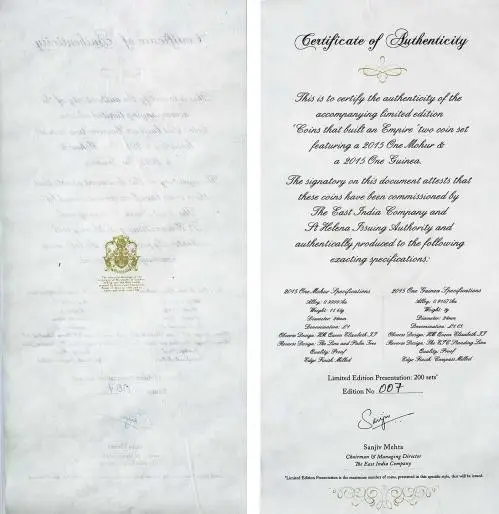 Certificate of Authenticity
This is to certify the authenticity of the
accompanying limited edition
'Coins that built an Empire' two coin set
featuring a 2015 One Mohur &
a 2015 One Guinea.
The signatory on this document attests that
these coins have been commissioned by
The East India Company and
St Helena Issuing Authority and
authentically produced to the following
exacting specifications:
2015 One Mohur Specifications
Alloy: 0.9999 Au
Weight:
Diameter:
Denomination: £1
Obverse Design: HM Queen Elizabeth II
Reverse Design: The Lion and Palm Tree
Quality: Proof
Edge Finish: Milled
2015 One Guinea Specifications
Alloy: 0.9167 Au
Weight:
Diameter:
Denomination: £1.05
Obverse Design: HM Queen Elizabeth II
Reverse Design: The EIC Standing Lion
Quality: Proof
Edge Finish: Milled
Limited Edition Presentation: 200 sets*
Edition No 007
Sanjiv
Sanjiv Mehta
Chairman & Managing Director
The East India Company
*Limited Edition Presentation is the maximum number of coins, presented in this specific style, that will be issued.